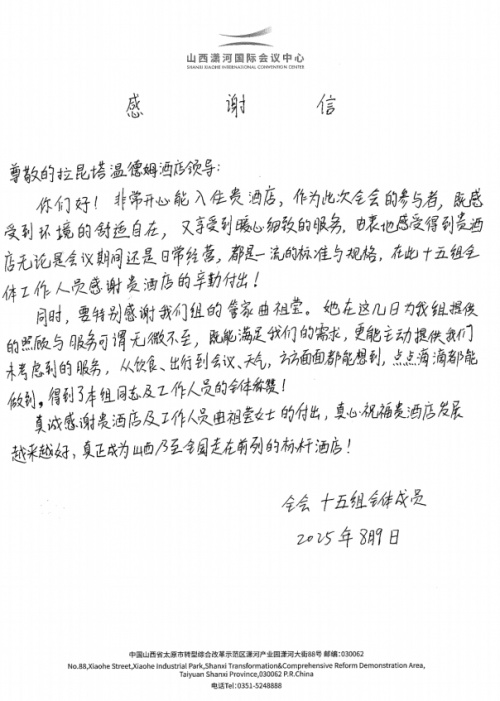 山西潇河国际会议中心
SHANXI XIAOHE INTERNATIONAL CONVENTION CENTER
感 谢 信
尊敬的拉昆塔温德姆酒店领导：
你们好！非常开心能入住贵酒店，作为此次全会的参与者，既感
受到环境的舒适自在，又享受到暖心细致的服务，由衷地感受得到贵酒
店无论是会议期间还是日常经营，都是一流的标准与规格，在此十五组全
体工作人员感谢贵酒店的辛勤付出！
同时，要特别感谢我们组的管家曲祖莹。她在这几日为我组提供
的照顾与服务可谓无微不至，既能满足我们的需求，更能主动提供我们
未考虑到的服务，从饮食、出行到会议、天气，方方面面都能想到，点点滴滴都能
做到。得到了本组同志及工作人员的全体称赞！
真诚感谢贵酒店及工作人员曲祖莹女士的付出，真心祝福贵酒店发展
越来越好，真正成为山西乃至全国走在前列的标杆酒店！
全会 十五组全体成员
2025年8月9日
中国山西省太原市转型综合改革示范区潇河产业园潇河大街88号 邮编：030062
No.88,Xiaohe Street,Xiaohe Industrial Park,Shanxi Transformation&Comprehensive Reform Demonstration Area,
Taiyuan Shanxi Province,030062 P.R.China
电话Tel：0351-5248888